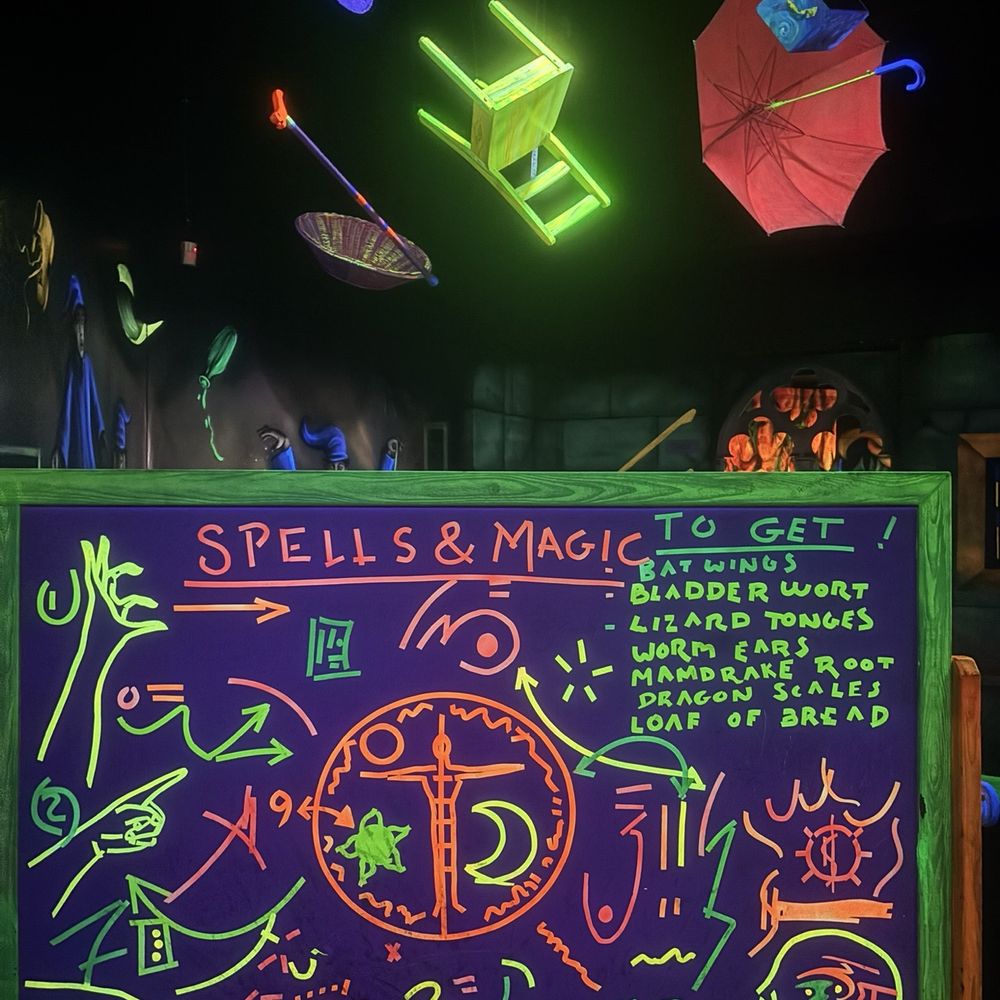 SPELLS & MAGIC
TO GET !
BAT WINGS
BLADDER WORT
- LIZARD TONGES
WORM EARS
MAMDRAKE ROOT
DRAGON SCALES
LOAF OF BREAD
1
2
9